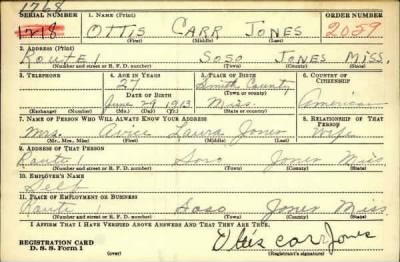 1768
SERIAL NUMBER 1. Name (Print) ORDER NUMBER
1718 OTTIS CARR JONES 2059
(First) (Middle) (Last)
2. Address (Print)
Route 1 Soso Jones Miss.
(Number and street or R. F. D. number) (Town) (County) (State)
3. Telephone 4. Age in Years 5. Place of Birth 6. Country of Citizenship
27 Smith County
Date of Birth (Town or county)
June 29 1913 Miss. American
(Exchange) (Number) (Mo.) (Day) (Yr.) (State or country)
7. Name of Person Who Will Always Know Your Address 8. Relationship of That Person
Mrs. Avice Laura Jones Wife
(Mr., Mrs., Miss) (First) (Middle) (Last)
9. Address of That Person
Route 1 Soso Jones Miss
(Number and street or R. F. D. number) (Town) (County) (State)
10. Employer's Name
Self
11. Place of Employment or Business
Route 1 Soso Jones Miss
(Number and street or R. F. D. number) (Town) (County) (State)
I Affirm That I Have Verified Above Answers and That They Are True.
REGISTRATION CARD
D. S. S. Form 1
Ottis Carr Jones
(Registrant's signature)